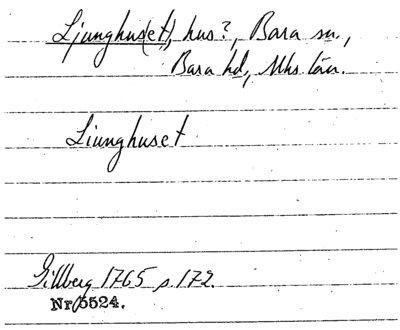 Ljunghus(et), hus?, Bara sn.,
Bara hd, Mhs län.
Liunghuset
Gillberg 1765 s. 172.
Nr 5524.